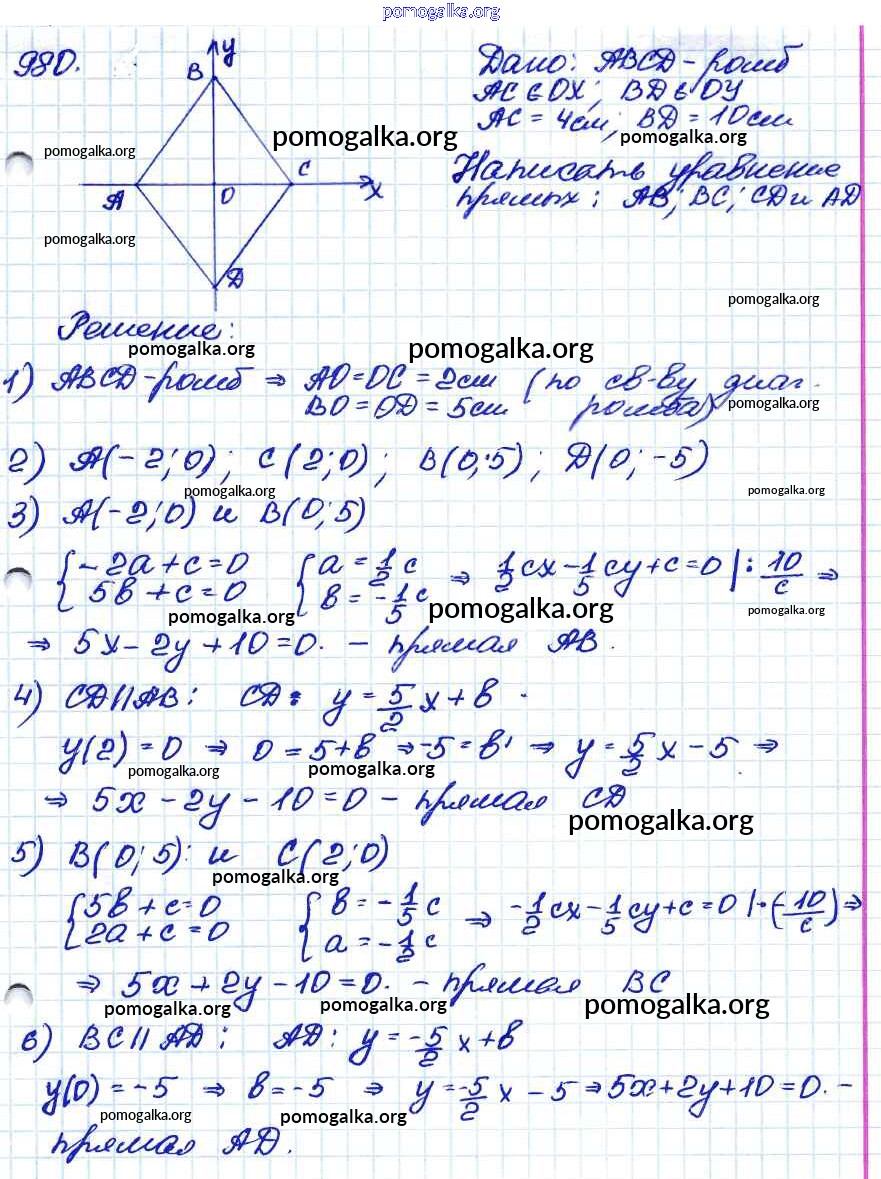 pomogalka.org
980.
y
B
A
O
C
x
D
Дано: ABCD - ромб
AC ∈ OX; BD ∈ OY
AC = 4см; BD = 10см
Написать уравнение
прямых: AB; BC; CD и AD
pomogalka.org
pomogalka.org
pomogalka.org
pomogalka.org
pomogalka.org
Решение:
pomogalka.org
pomogalka.org
1) ABCD - ромб ⇒ AO = OC = 2см (по св-ву диаг.
BO = OD = 5см ромба)
pomogalka.org
2) A(-2; 0); C(2; 0); B(0; 5); D(0; -5)
pomogalka.org
pomogalka.org
3) A(-2; 0) и B(0; 5)
{-2a + c = 0 {a = 1/2 c ⇒ 1/2 cx - 1/5 cy + c = 0 |: 10/c ⇒
5b + c = 0 b = -1/5 c
pomogalka.org
pomogalka.org
pomogalka.org
⇒ 5x - 2y + 10 = 0. - прямая AB.
4) CD || AB: CD: y = 5/2 x + b
y(2) = 0 ⇒ 0 = 5 + b ⇒ -5 = b ⇒ y = 5/2 x - 5 ⇒
pomogalka.org
pomogalka.org
⇒ 5x - 2y - 10 = 0 - прямая CD
pomogalka.org
5) B(0; 5) и C(2; 0)
pomogalka.org
{5b + c = 0 {b = -1/5 c ⇒ -1/2 cx - 1/5 cy + c = 0 | · (-10/c) ⇒
2a + c = 0 a = -1/2 c
⇒ 5x + 2y - 10 = 0. - прямая BC
pomogalka.org
pomogalka.org
pomogalka.org
6) BC || AD: AD: y = -5/2 x + b
y(0) = -5 ⇒ b = -5 ⇒ y = -5/2 x - 5 ⇒ 5x + 2y + 10 = 0. -
pomogalka.org
pomogalka.org
прямая AD.